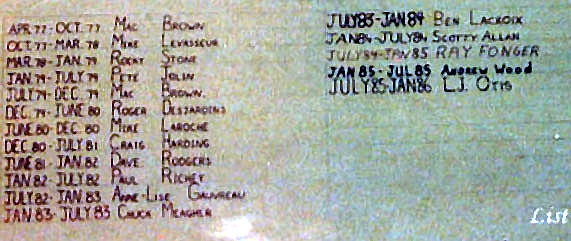 APR 77 - OCT. 77 MAC BROWN
OCT. 77 - MAR. 78 MIKE LEVASSEUR
MAR 78 - JAN. 79 ROCKY STONE
JAN 79 - JULY 79 PETE JOLIN
JULY 79 - DEC. 79 MAC BROWN.
DEC. 79 - JUNE 80 ROGER DESJARDINS
JUNE 80 - DEC. 80 MIKE LAROCHE
DEC 80 - JULY 81 CRAIG HARDING
JUNE 81 - JAN. 82 DAVE RODGERS
JAN 82 - JULY 82 PAUL RICHEY
JULY 82 - JAN. 83 ANNE-LISE GAUVREAU
JAN 83 - JULY 83 CHUCK MEAGHER
JULY 83 - JAN 84 BEN LACROIX
JAN 84 - JULY 84 SCOTTY ALLAN
JULY 84 - JAN 85 RAY FONGER
JAN 85 - JUL 85 ANDREW WOOD
JULY 85 JAN 86 L.J. OTIS
List